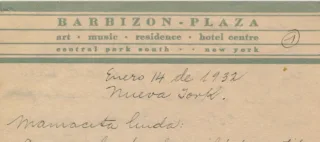 BARBIZON-PLAZA
art · music · residence · hotel centre
central park south · · new york
1
Enero 14 de 1932
Nueva York.
Mamacita linda: